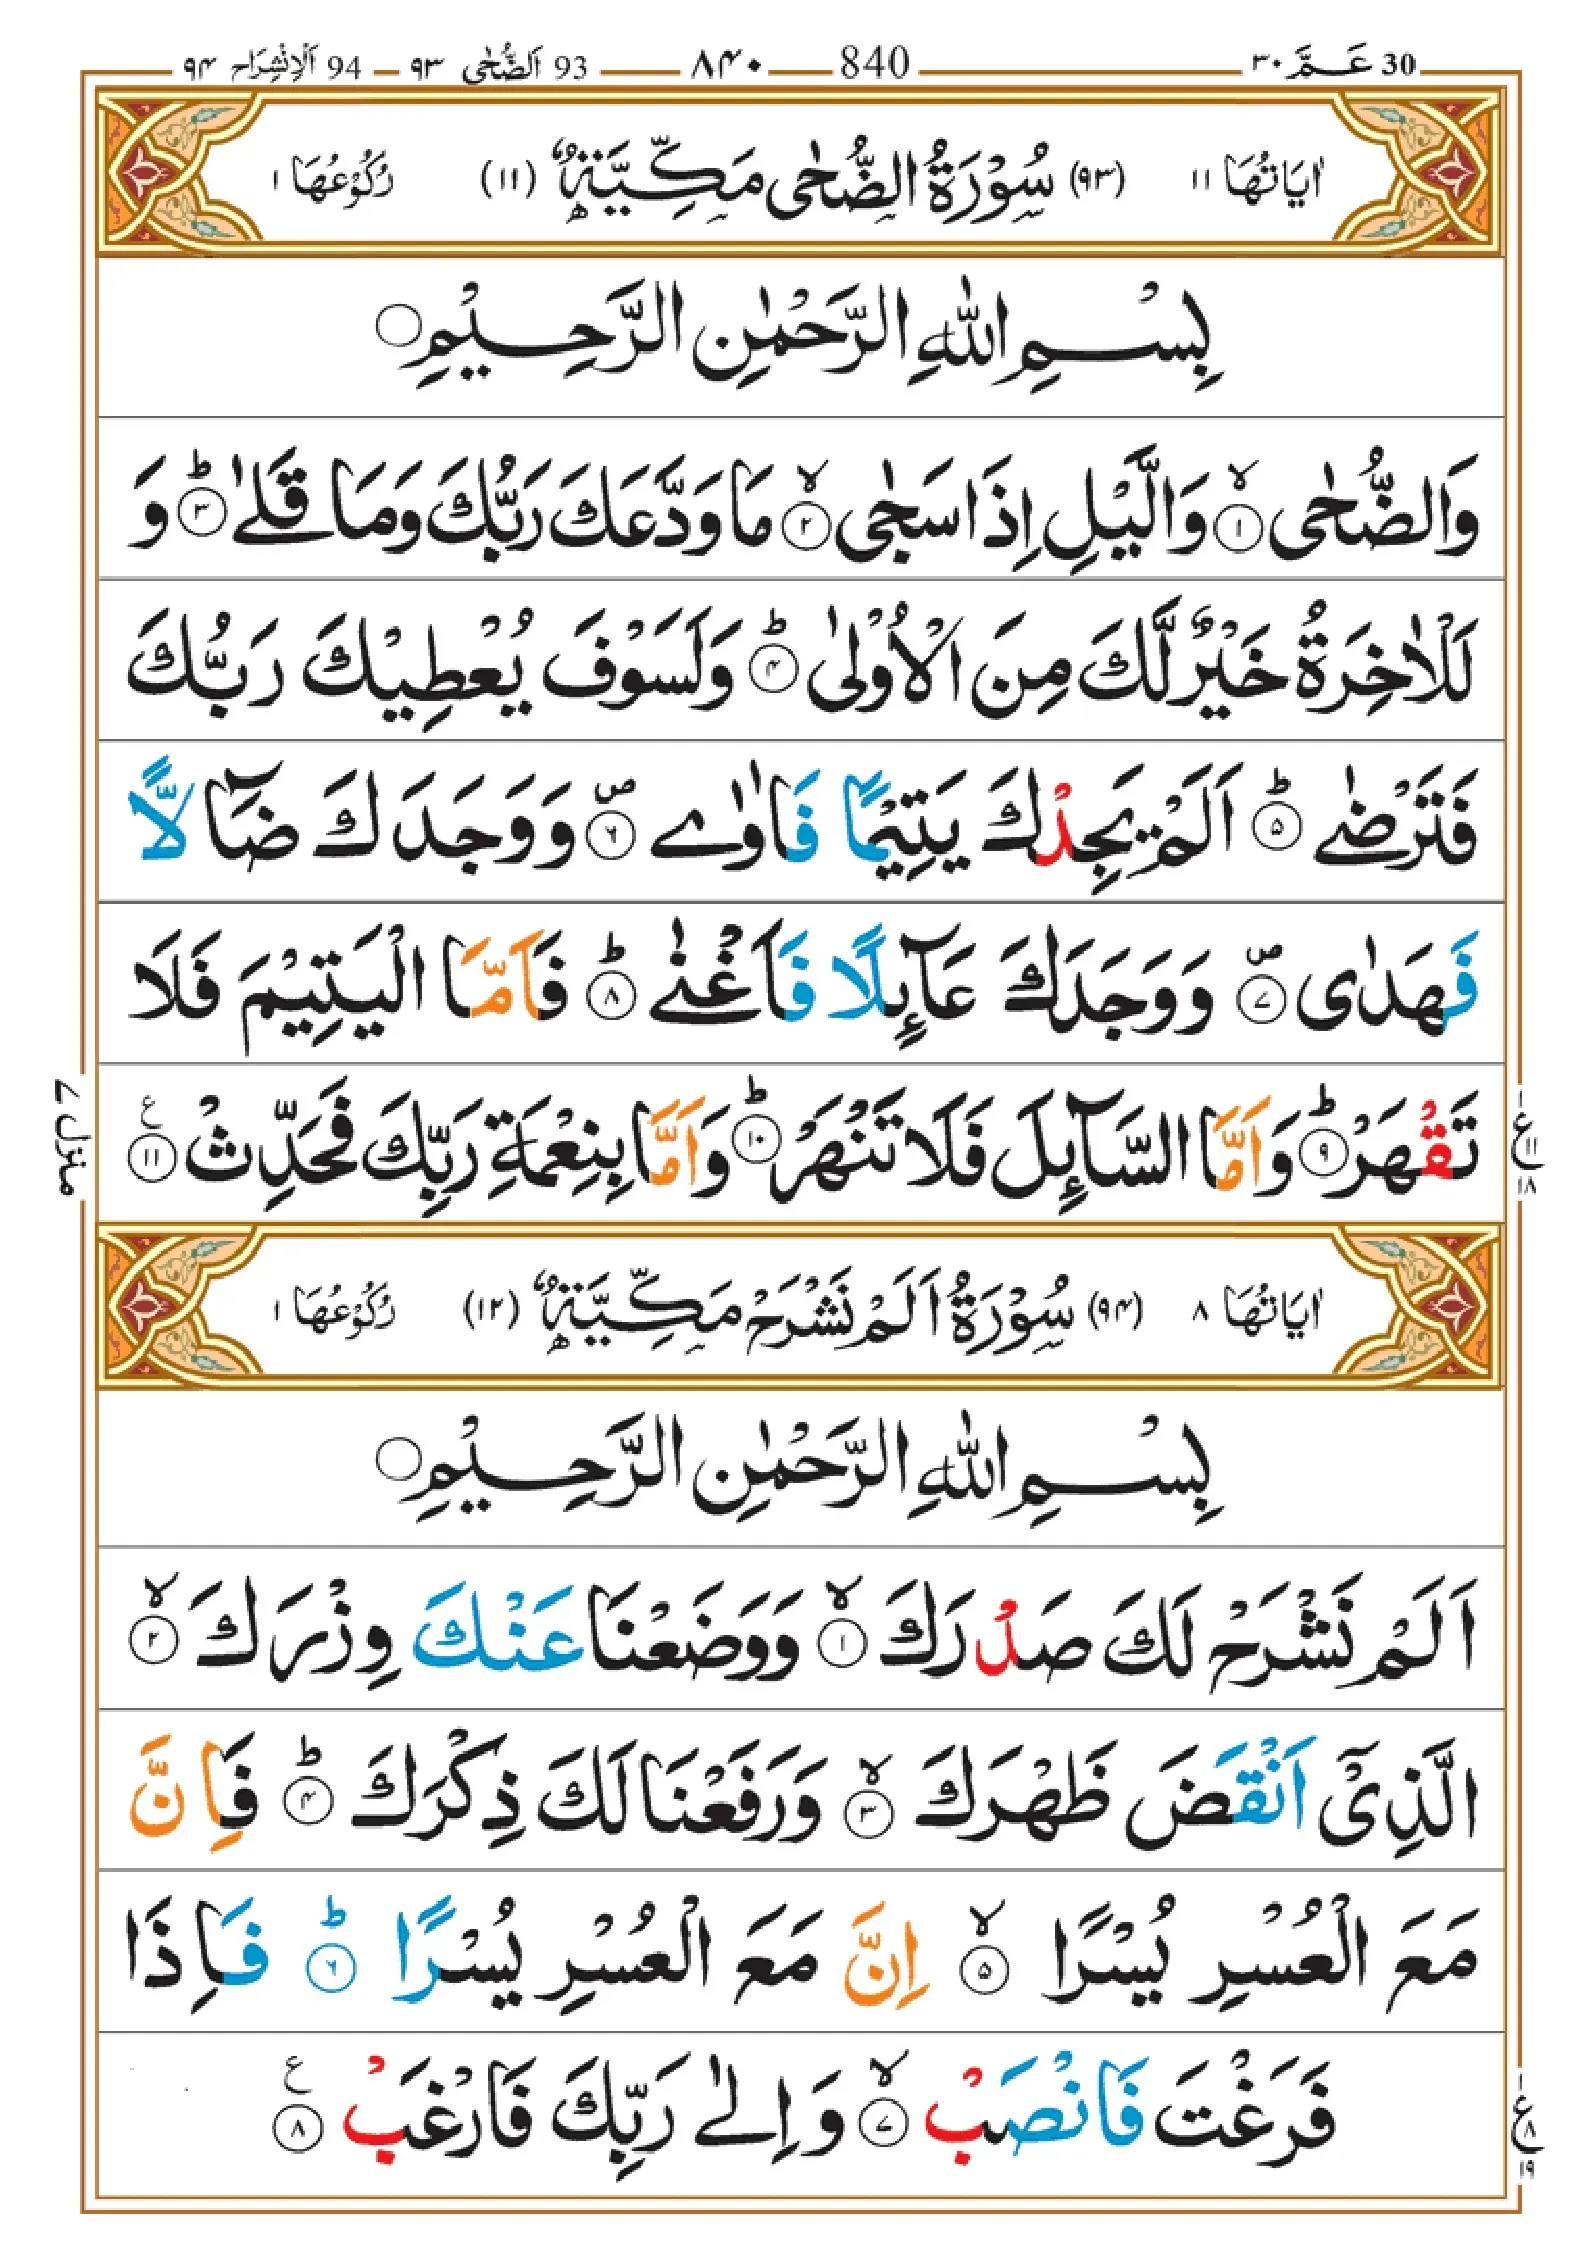 30 عَمَّ ٣٠ — 840 — ٨۴٠ — 93 اَلضُّحٰى ٩٣ — 94 اَلْاِنْشِرَاح ٩۴
اٰيَاتُهَا ١١ (٩٣) سُوْرَةُ الضُّحٰى مَكِّيَّةٌ (١١) رُكُوْعُهَا ١
بِسْمِ اللّٰهِ الرَّحْمٰنِ الرَّحِيْمِ ○
وَالضُّحٰى ۙ﴿١﴾ وَالَّيْلِ اِذَا سَجٰى ۙ﴿٢﴾ مَا وَدَّعَكَ رَبُّكَ وَمَا قَلٰى ؕ﴿٣﴾ وَ
لَلْاٰخِرَةُ خَيْرٌ لَّكَ مِنَ الْاُوْلٰى ؕ﴿۴﴾ وَلَسَوْفَ يُعْطِيْكَ رَبُّكَ
فَتَرْضٰى ؕ﴿۵﴾ اَلَمْ يَجِدْكَ يَتِيْمًا فَاٰوٰى ۪﴿۶﴾ وَوَجَدَكَ ضَآلًّا
فَهَدٰى ۪﴿۷﴾ وَوَجَدَكَ عَآئِلًا فَاَغْنٰى ؕ﴿۸﴾ فَاَمَّا الْيَتِيْمَ فَلَا
تَقْهَرْ ؕ﴿۹﴾ وَاَمَّا السَّآئِلَ فَلَا تَنْهَرْ ؕ﴿١٠﴾ وَاَمَّا بِنِعْمَةِ رَبِّكَ فَحَدِّثْ ﴿١١﴾ ع
١ ع ١١ ١٨
منزل ۷
اٰيَاتُهَا ٨ (٩۴) سُوْرَةُ اَلَمْ نَشْرَحْ مَكِّيَّةٌ (١٢) رُكُوْعُهَا ١
بِسْمِ اللّٰهِ الرَّحْمٰنِ الرَّحِيْمِ ○
اَلَمْ نَشْرَحْ لَكَ صَدْرَكَ ۙ﴿١﴾ وَوَضَعْنَا عَنْكَ وِزْرَكَ ۙ﴿٢﴾
الَّذِيْۤ اَنْقَضَ ظَهْرَكَ ۙ﴿٣﴾ وَرَفَعْنَا لَكَ ذِكْرَكَ ؕ﴿۴﴾ فَاِنَّ
مَعَ الْعُسْرِ يُسْرًا ۙ﴿۵﴾ اِنَّ مَعَ الْعُسْرِ يُسْرًا ؕ﴿۶﴾ فَاِذَا
فَرَغْتَ فَانْصَبْ ۙ﴿۷﴾ وَاِلٰى رَبِّكَ فَارْغَبْ ﴿۸﴾ ع
١ ع ٨ ١٩